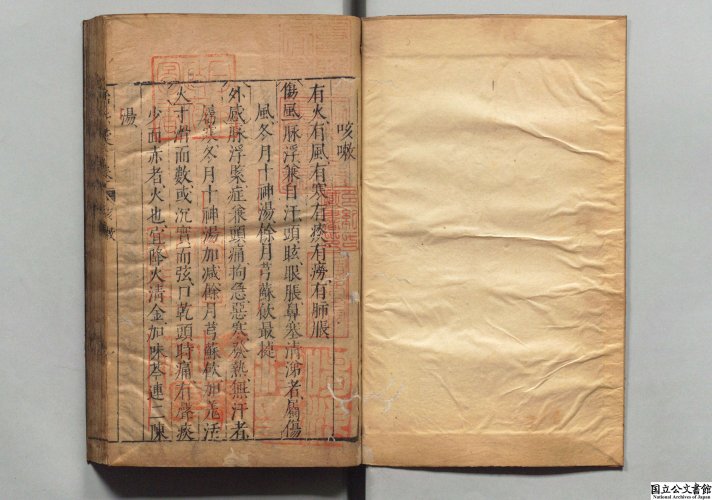 咳嗽
有火有風有寒有痰有癆有肺脹
傷風脉浮兼自汗頭眩眼脹鼻塞清涕者屬傷
風冬月十神湯餘月芎蘇飲最捷
外感脉浮緊症兼頭痛拘急惡寒發熱無汗者
寒冬月十神湯加減餘月芎蘇飲加羌活
火寸滑而數或沉實而弦口乾頭時痛有聲痰
少面赤者火也宜降火清金加味芩連二陳
湯
国立公文書館
National Archives of Japan